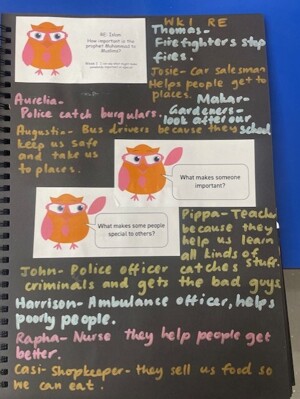 RE: Islam
How important is the
prophet Muhammad to
Muslims?
Wk1 RE
Thomas-
Firefighters stop
fires.
Josie- Car salesman
Helps people get to
places.
Aurelia-
Police catch burgulars.
Makar-
Gardeners-
look after our
school
Augusti- Bus drivers because they
keep us safe
and take us
to places.
What makes someone
important?
What makes some people
special to others?
Pippa- Teacher
because they
help us learn
all kinds of
stuff.
John- Police officer catches
criminals and gets the bad guys
Harrison- Ambulance officer, helps
poorly people.
Rapha- Nurse they help people get
better.
Casi- Shopkeeper- they sell us food so
we can eat.